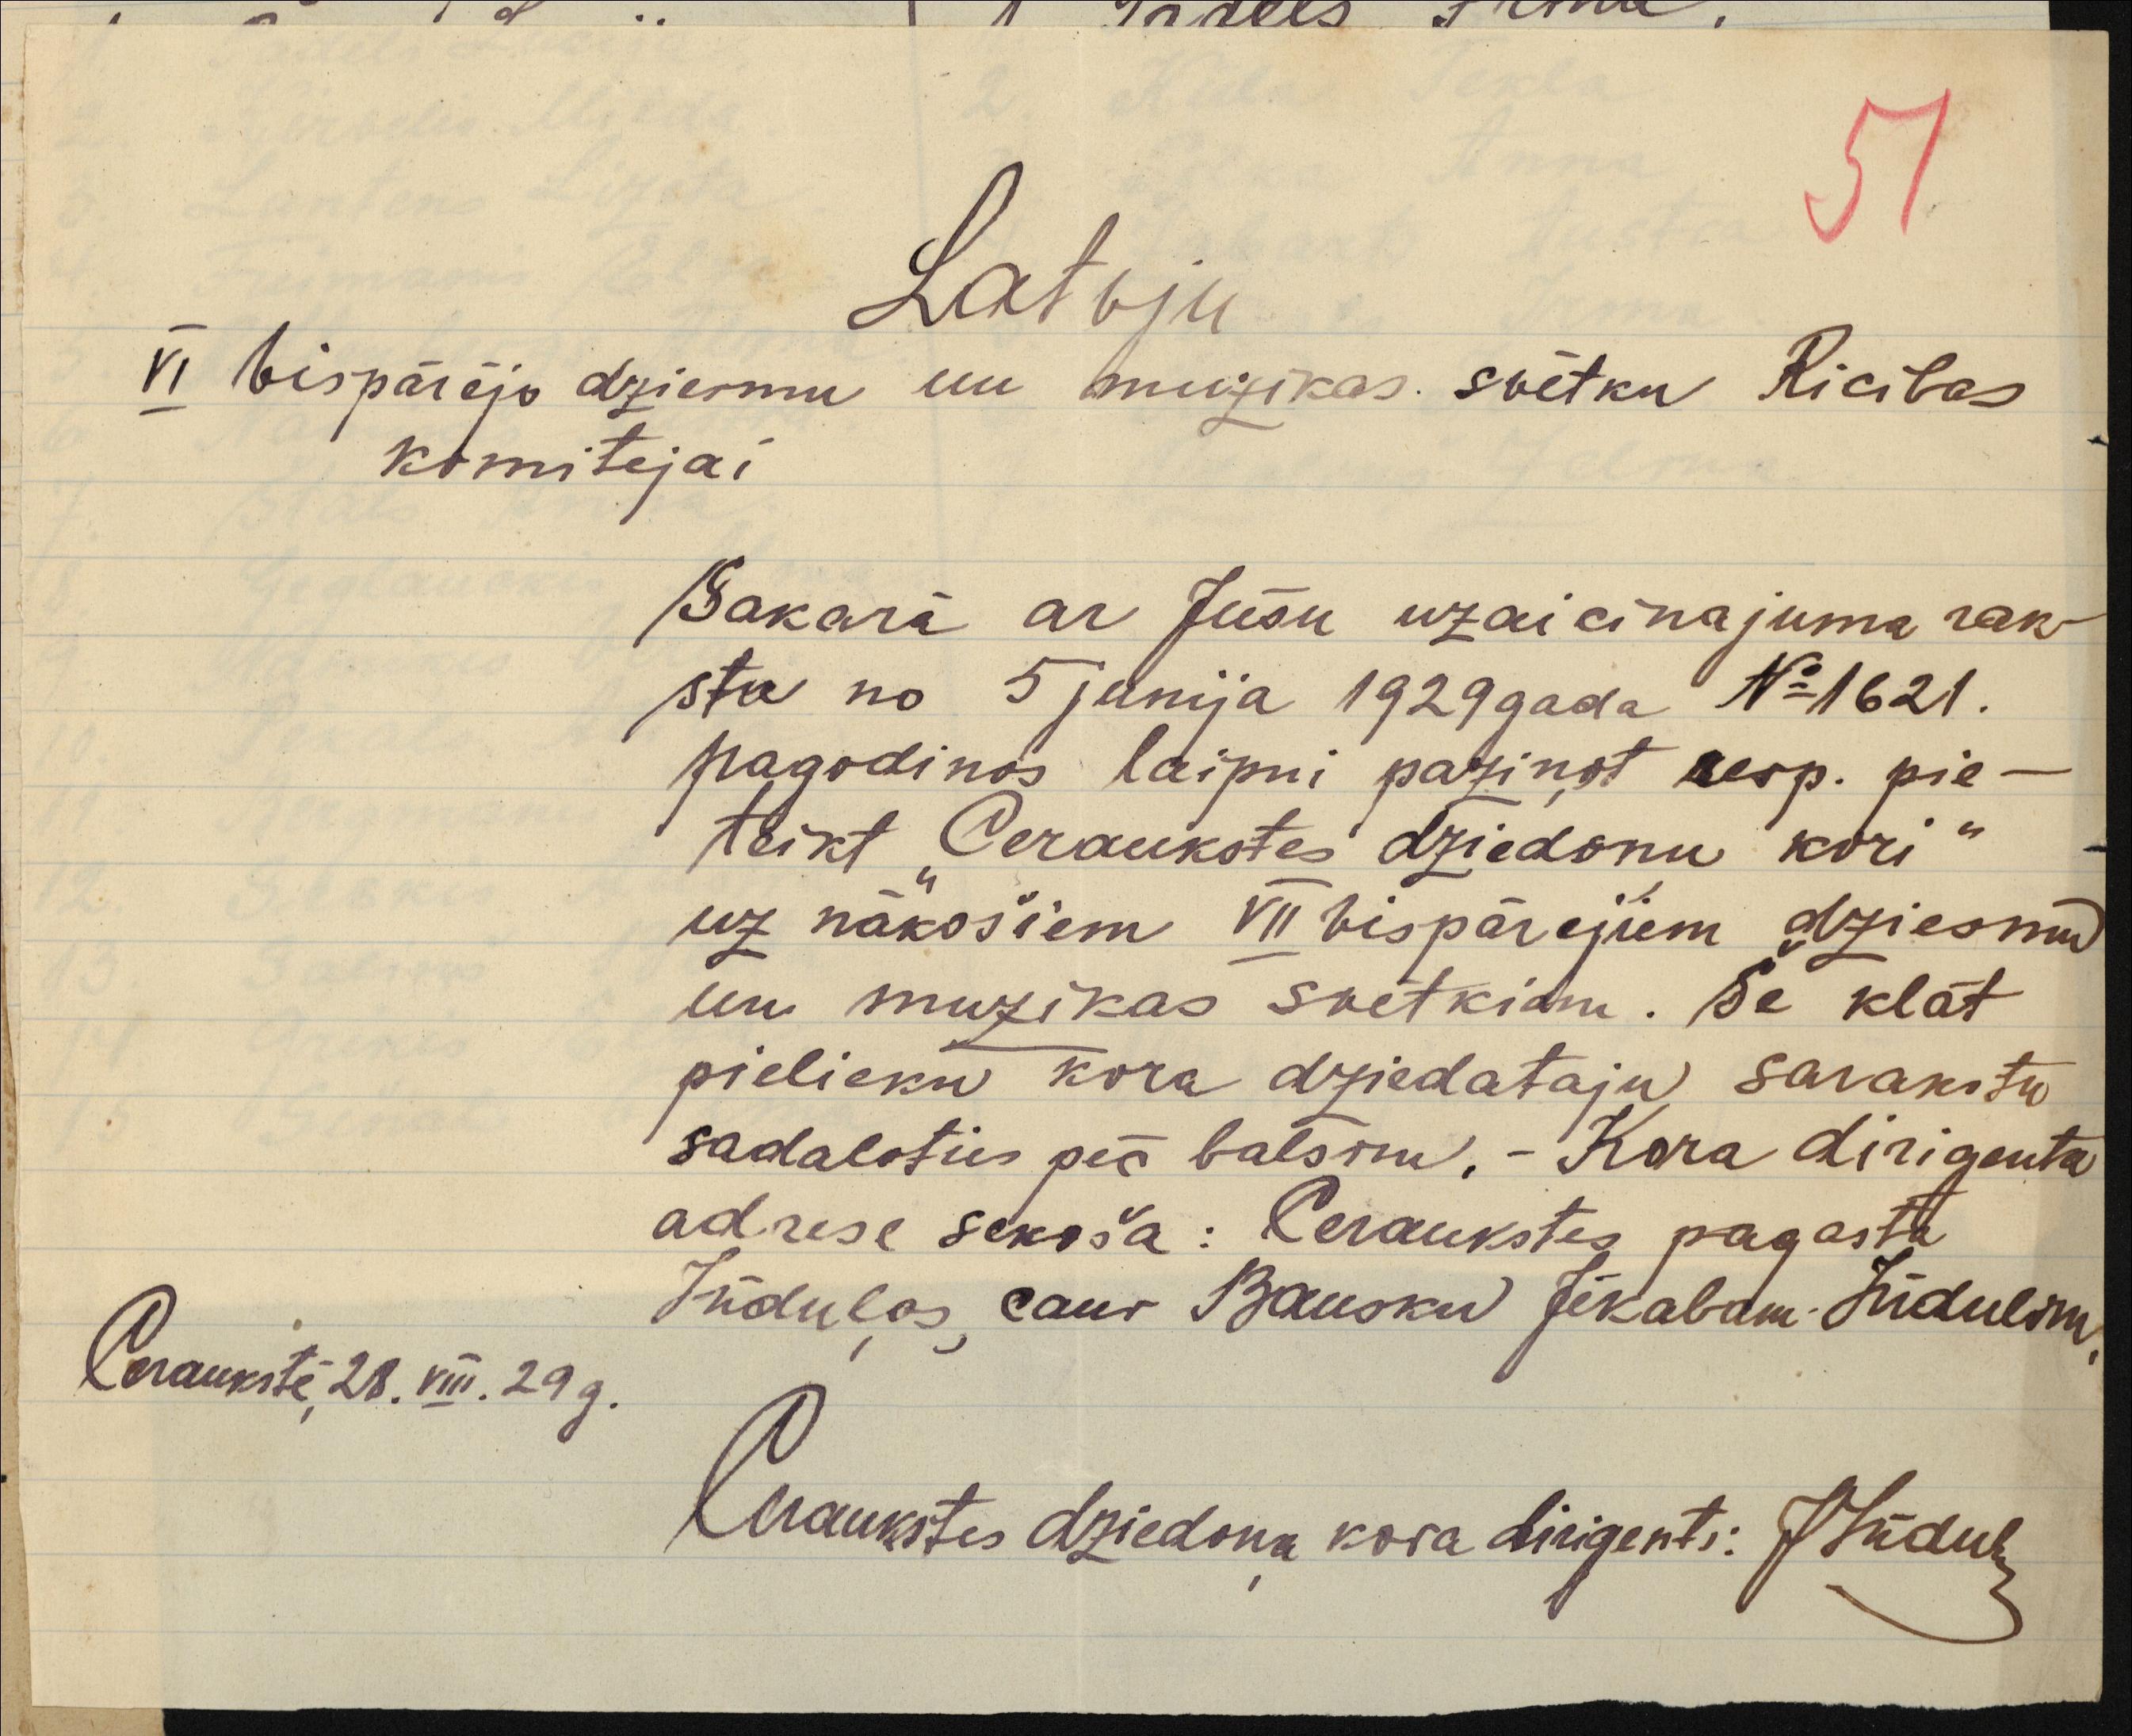 51
Latvju
VI vispārējo dziesmu un muzikas svētku Ricibas
komitejai
Sakarā ar Jūsu uzaicinajuma rak-
sta no 5 junija 1929 gada № 1621.
pagodinos laipni paziņot resp. pie-
teikt „Ceraukstes dziedonu kori“
uz nākošiem VII vispārejiem dziesmu
un muzikas svētkiem. Še klāt
pielieku kora dziedataju sarakstu
sadaloties pēc balsim. - Kora dirigenta
adrese sekoša: Ceraukstes pagasta
Jūduļos, caur Bausku Jēkabam Jūdulim.
Ceraukstē, 28. VIII. 29 g.
Ceraukstes dziedoņu kora dirigents: J Jūdulis